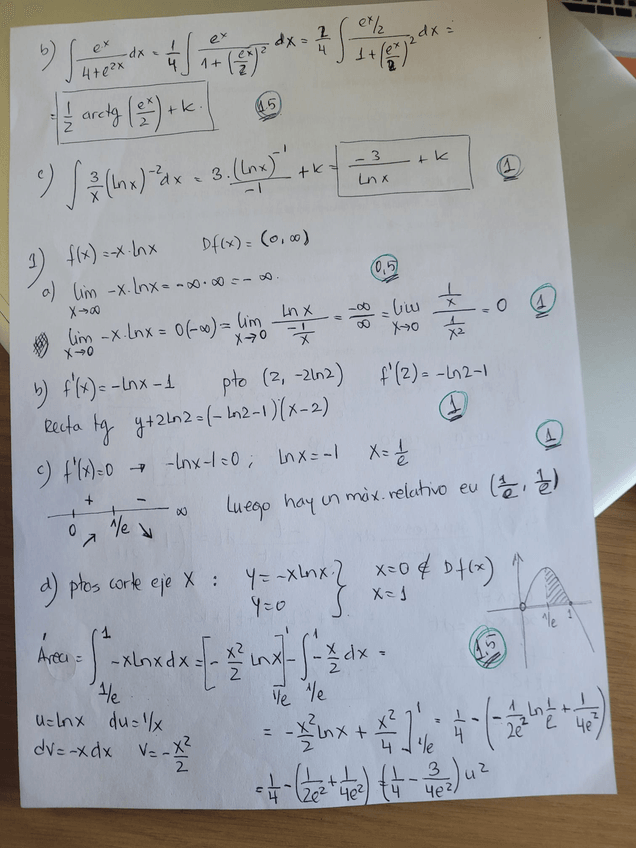 b) ∫ e^x/(4+e^2x) dx = 1/4 ∫ e^x/(1+(e^x/2)^2) dx = 2/4 ∫ (e^x/2)/(1+(e^x/2)^2) dx =
= 1/2 arctg (e^x/2) + k. 1.5
c) ∫ 3/x (lnx)^-2 dx = 3·(lnx)^-1/-1 + k = -3/lnx + k 1
1) f(x)=-x·lnx Df(x)=(0,∞)
a) lim x→∞ -x·lnx = -∞·∞ = -∞. 0,5
lim x→0 -x·lnx = 0(-∞) = lim x→0 lnx/(-1/x) = -∞/∞ = lim x→0 (1/x)/(1/x^2) = 0 1
b) f'(x)=-lnx-1 pto (2, -2ln2) f'(2)=-ln2-1
Recta tg y+2ln2=(-ln2-1)(x-2) 1
c) f'(x)=0 → -lnx-1=0; lnx=-1 x=1/e 1
+ -
0 ↗ 1/e ↘ ∞ Luego hay un máx. relativo en (1/e, 1/e)
d) ptos corte eje X : y=-xlnx } x=0 ∉ Df(x)
y=0 } x=1
1/e 1
Área = ∫_1/e^1 -xlnxdx = [-x^2/2 lnx]_1/e^1 - ∫_1/e^1 -x/2 dx = 1.5
u=lnx du=1/x
dv=-xdx v=-x^2/2
= -x^2/2 lnx + x^2/4 ]_1/e^1 = 1/4 - (-1/2e^2 ln 1/e + 1/4e^2)
= 1/4 - (1/2e^2 + 1/4e^2) = (1/4 - 3/4e^2) u^2